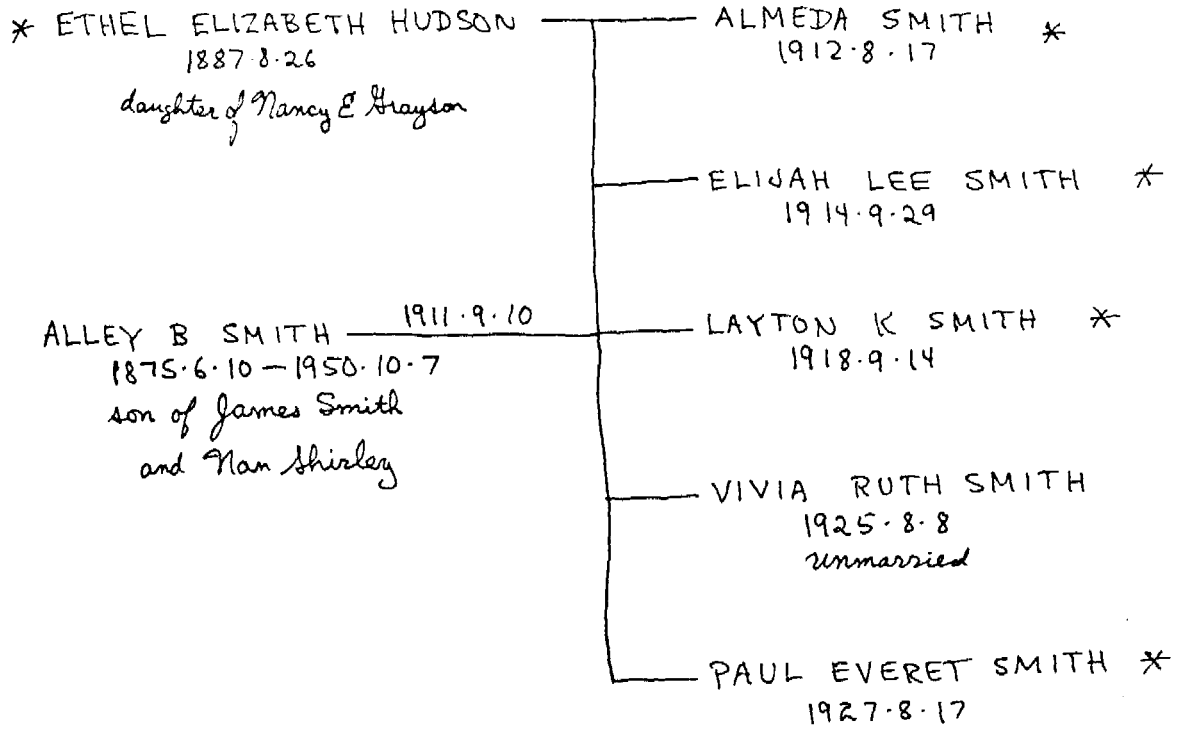 * ETHEL ELIZABETH HUDSON
1887.8.26
daughter of Nancy E Grayson
ALLEY B SMITH
1911.9.10
1875.6.10 — 1950.10.7
son of James Smith
and Nan Shirley
ALMEDA SMITH *
1912.8.17
ELIJAH LEE SMITH *
1914.9.29
LAYTON K SMITH *
1918.9.14
VIVIA RUTH SMITH
1925.8.8
unmarried
PAUL EVERET SMITH *
1927.8.17